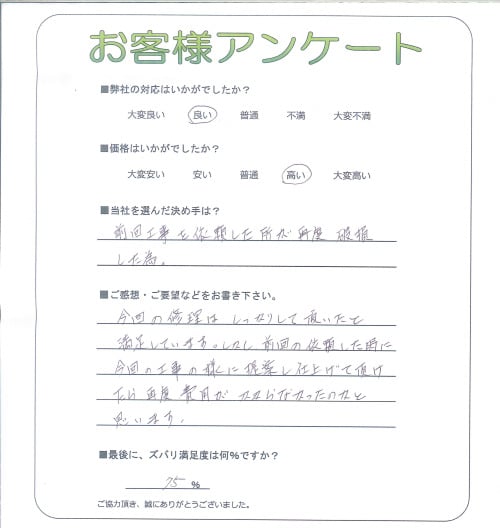 お客様アンケート
■弊社の対応はいかがでしたか？
大変良い 良い 普通 不満 大変不満
■価格はいかがでしたか？
大変安い 安い 普通 高い 大変高い
■当社を選んだ決め手は？
前回工事を依頼した所が再度破損
した為。
■ご感想・ご要望などをお書き下さい。
今回の修理はしっかりして頂いたと
満足しています。しかし前回の依頼した時に
今回の工事の様に提案し仕上げて頂け
たら再度費用がかからなかったのかと
思います。
■最後に、ズバリ満足度は何％ですか？
75 %
ご協力頂き、誠にありがとうございました。